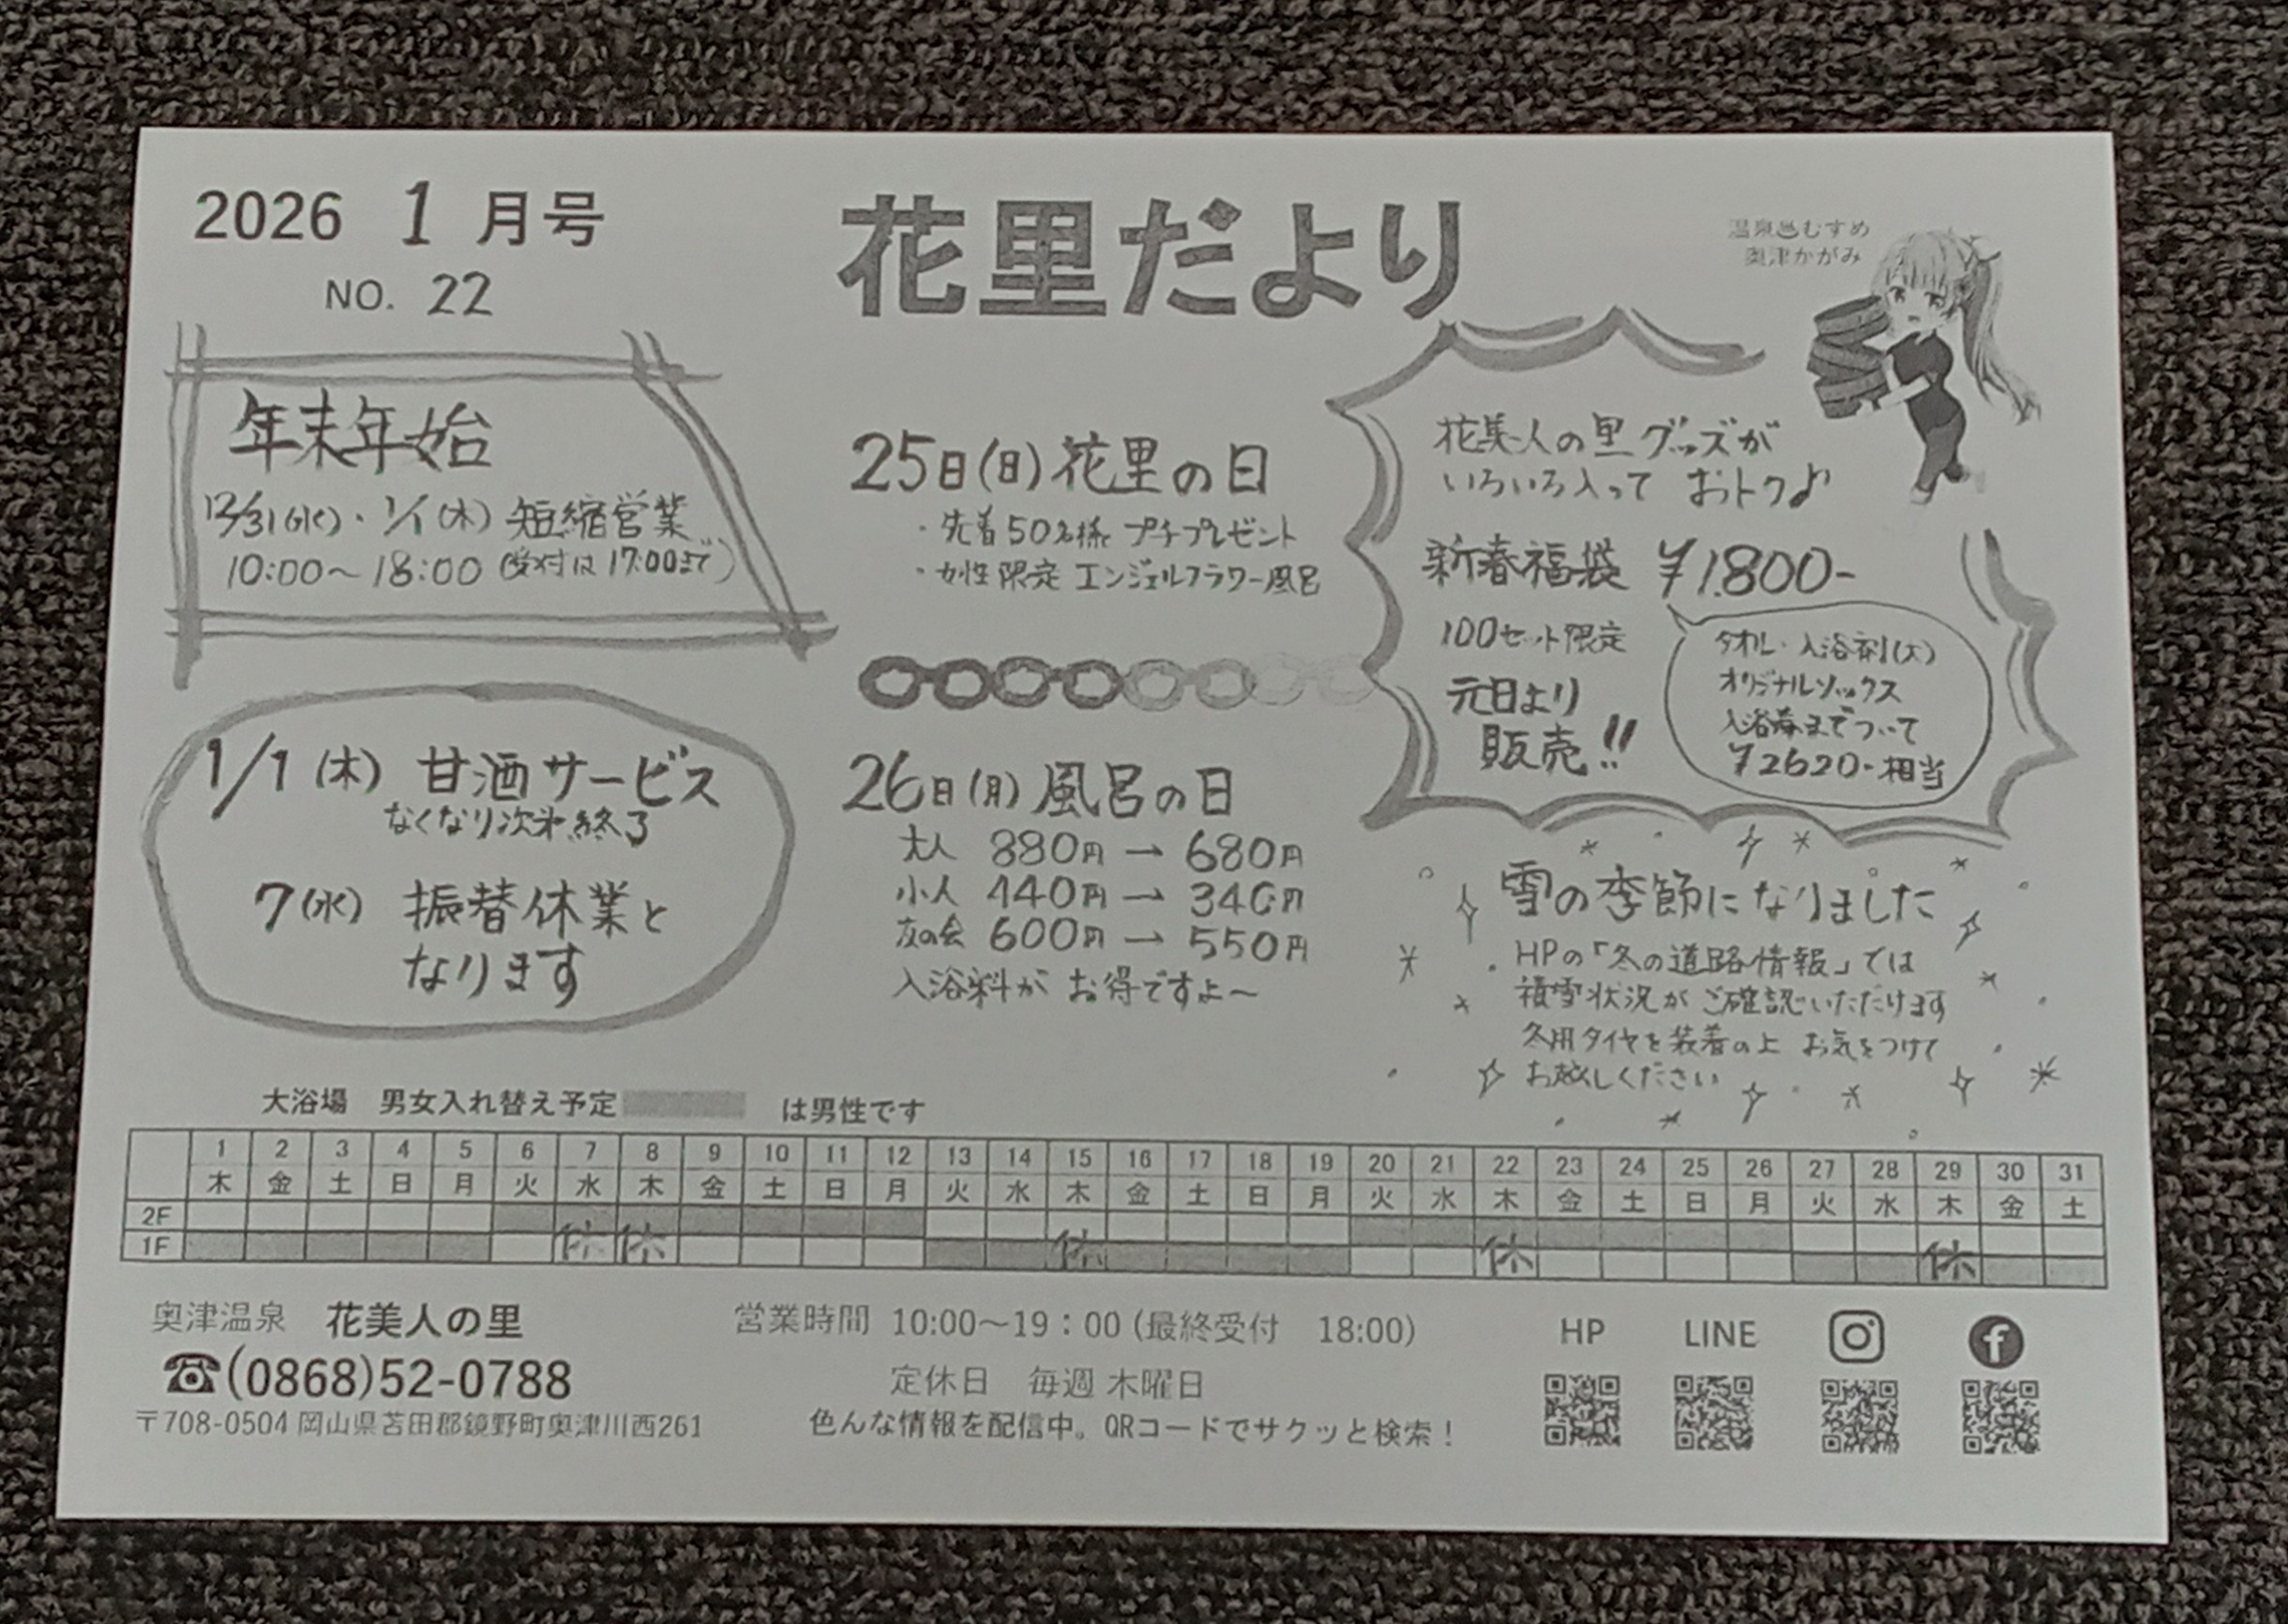 2026 1月号
NO. 22
花里だより
温泉♨むすめ
奥津かがみ
年末年始
12/31(水)・1/1(木) 短縮営業
10:00～18:00 (受付は17:00まで)
1/1(木) 甘酒サービス
なくなり次第終了
7(水) 振替休業と
なります
25日(日) 花里の日
・先着50名様 プチプレゼント
・女性限定 エンジェルフラワー風呂
26日(月) 風呂の日
大人 880円→680円
小人 440円→340円
友の会 600円→550円
入浴料が お得ですよ～
花美人の里グッズが
いろいろ入って おトク♪
新春福袋 ¥1,800-
100セット限定
元日より
販売!!
タオル・入浴剤(大)
オリジナルソックス
入浴券までついて
¥2620-相当
雪の季節になりました
HPの「冬の道路情報」では
積雪状況が ご確認いただけます
冬用タイヤを装着の上 お気をつけて
お越しください
大浴場 男女入れ替え予定 は男性です
1 2 3 4 5 6 7 8 9 10 11 12 13 14 15 16 17 18 19 20 21 22 23 24 25 26 27 28 29 30 31
木 金 土 日 月 火 水 木 金 土 日 月 火 水 木 金 土 日 月 火 水 木 金 土 日 月 火 水 木 金 土
2F
1F
休 休 休 休 休
奥津温泉 花美人の里
☎(0868)52-0788
〒708-0504 岡山県苫田郡鏡野町奥津川西261
営業時間 10:00～19：00 (最終受付 18:00)
定休日 毎週 木曜日
色んな情報を配信中。QRコードでサクッと検索！
HP LINE